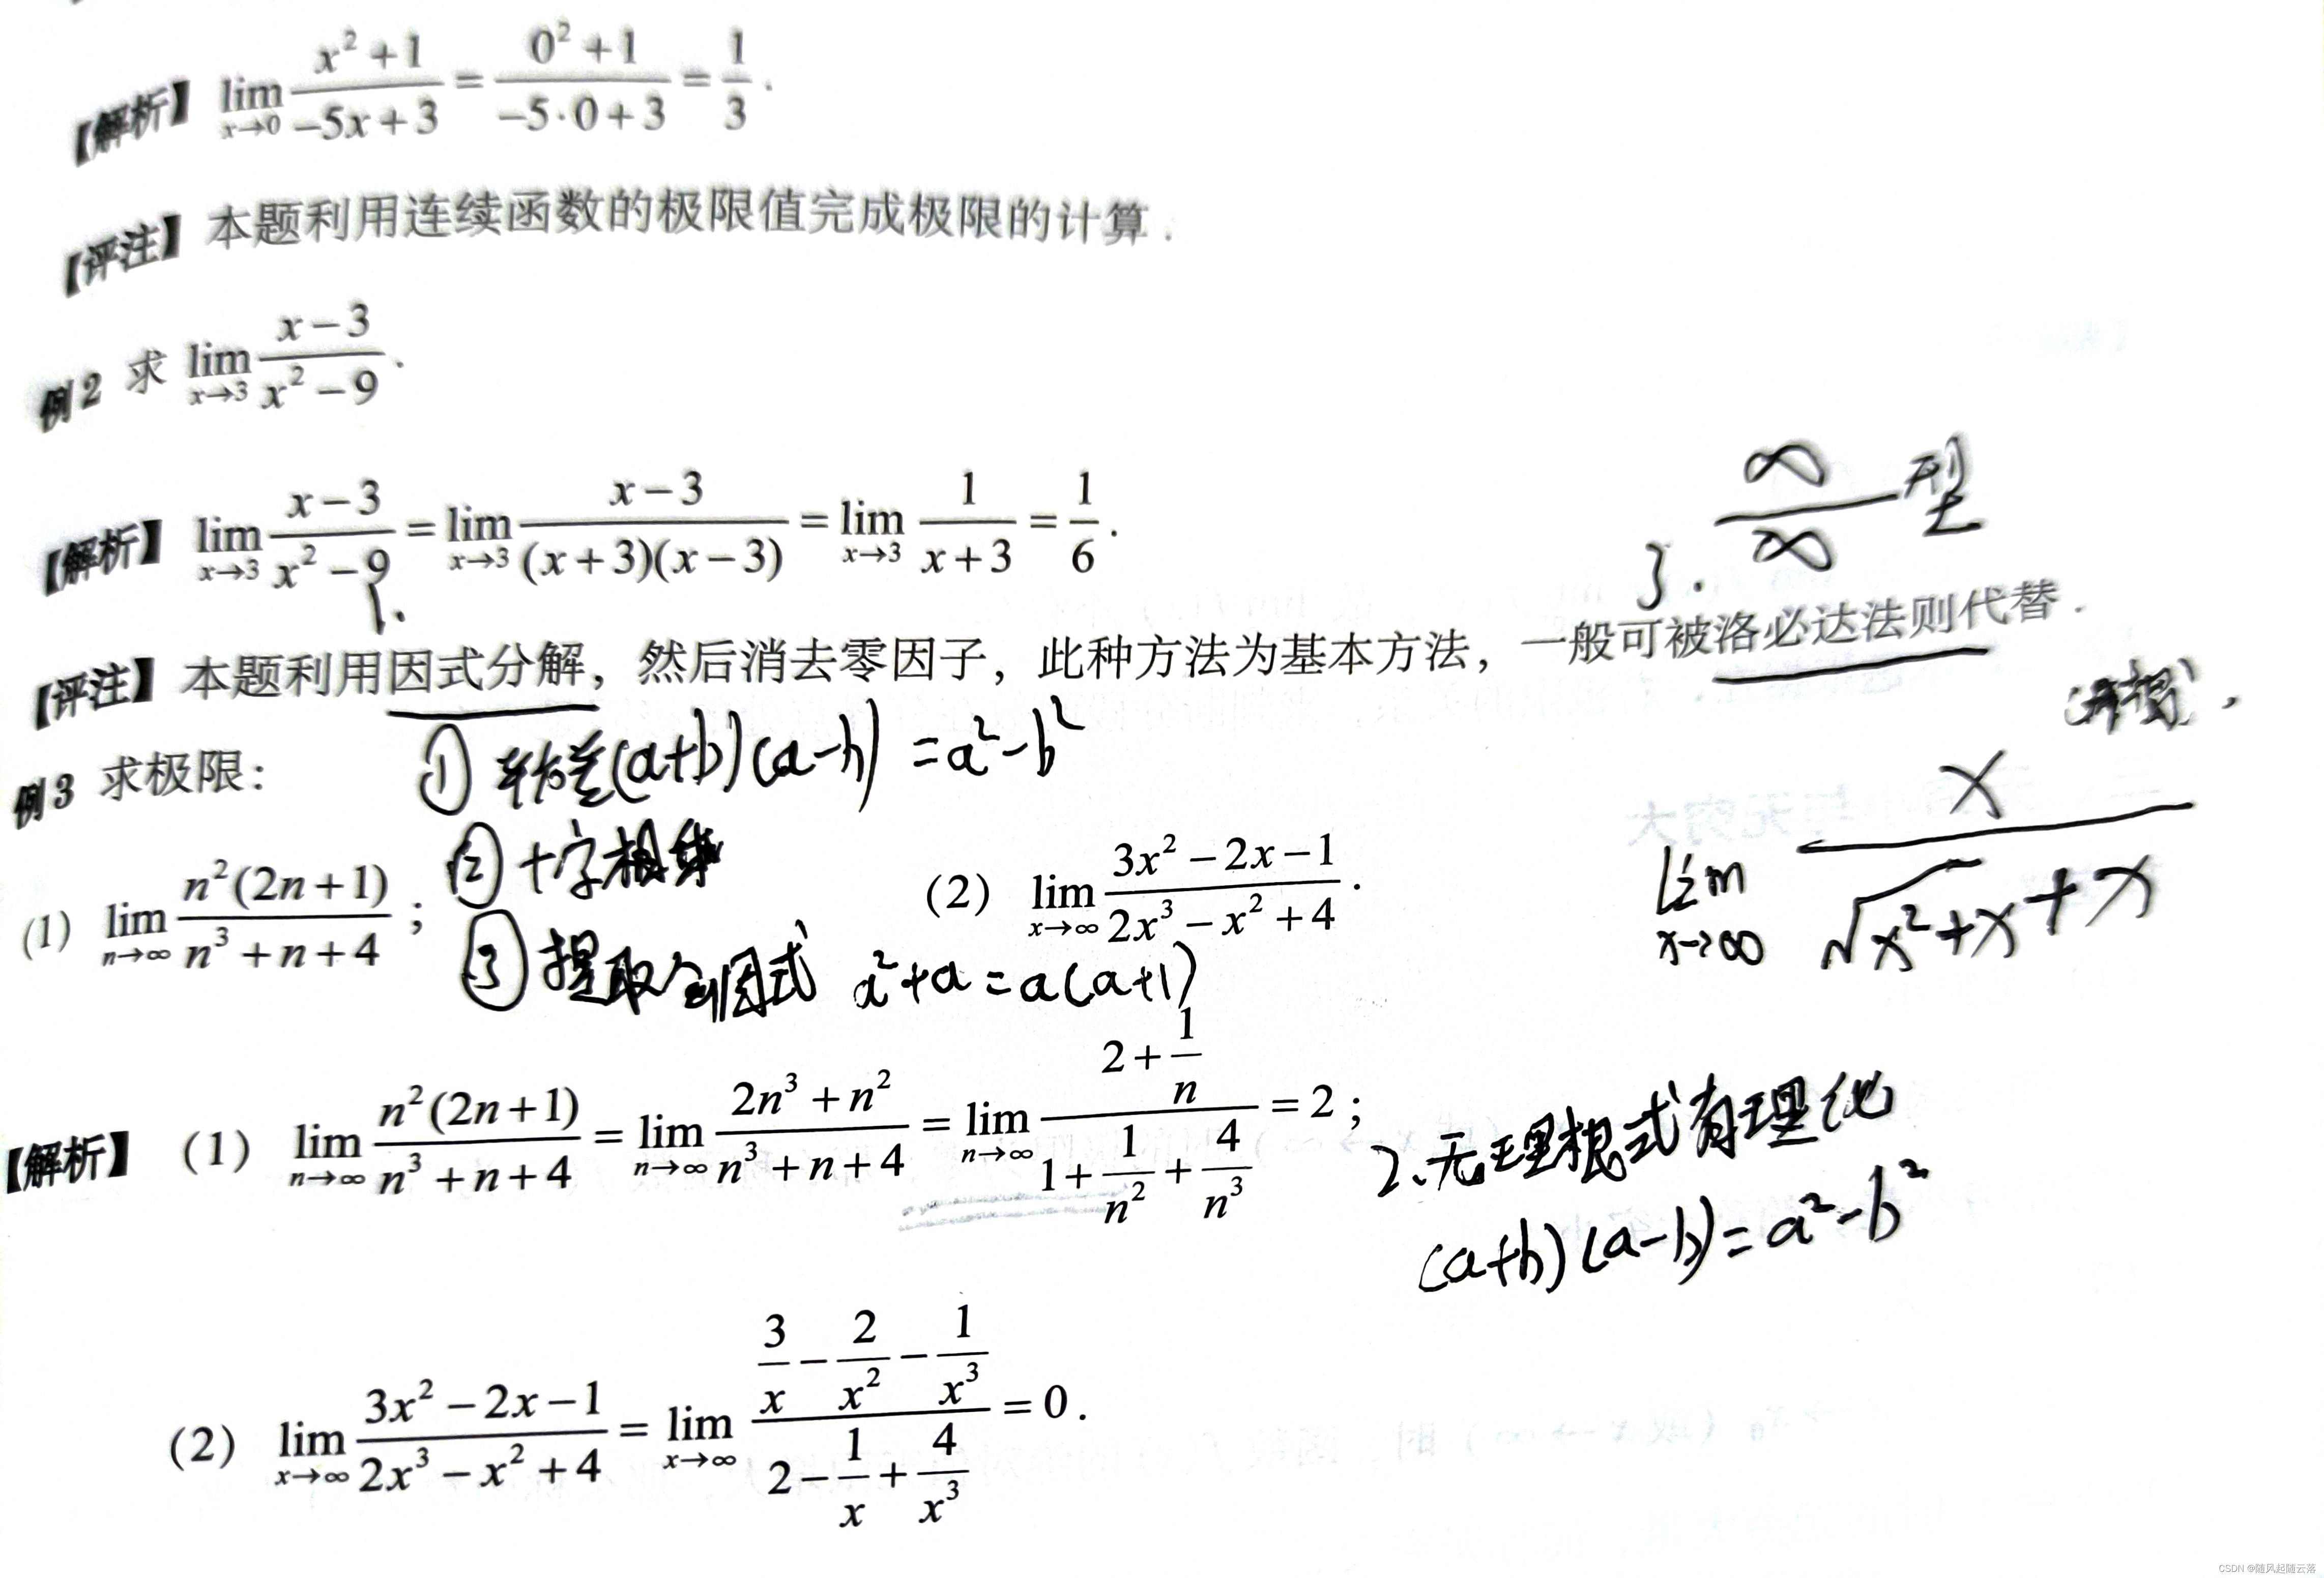 【解析】 lim_{x→0} (x²+1)/(-5x+3) = (0²+1)/(-5·0+3) = 1/3.
【评注】 本题利用连续函数的极限值完成极限的计算.
例2 求 lim_{x→3} (x-3)/(x²-9).
【解析】 lim_{x→3} (x-3)/(x²-9) = lim_{x→3} (x-3)/((x+3)(x-3)) = lim_{x→3} 1/(x+3) = 1/6.
3. ∞/∞ 型
1.
【评注】 本题利用因式分解，然后消去零因子，此种方法为基本方法，一般可被洛必达法则代替.
① (a+b)(a-b) = a²-b²
例3 求极限:
② 十字相乘
(1) lim_{n→∞} n²(2n+1)/(n³+n+4);
(2) lim_{x→∞} (3x²-2x-1)/(2x³-x²+4).
lim_{x→∞} x/(√(x²+x)+x)
③ 提取公因式 a²+a=a(a+1)
【解析】 (1) lim_{n→∞} n²(2n+1)/(n³+n+4) = lim_{n→∞} (2n³+n²)/(n³+n+4) = lim_{n→∞} (2+1/n)/(1+1/n²+4/n³) = 2;
2. 无理根式有理化
(a+b)(a-b)=a²-b²
(2) lim_{x→∞} (3x²-2x-1)/(2x³-x²+4) = lim_{x→∞} (3/x-2/x²-1/x³)/(2-1/x+4/x³) = 0.
CSDN @随风起随云落